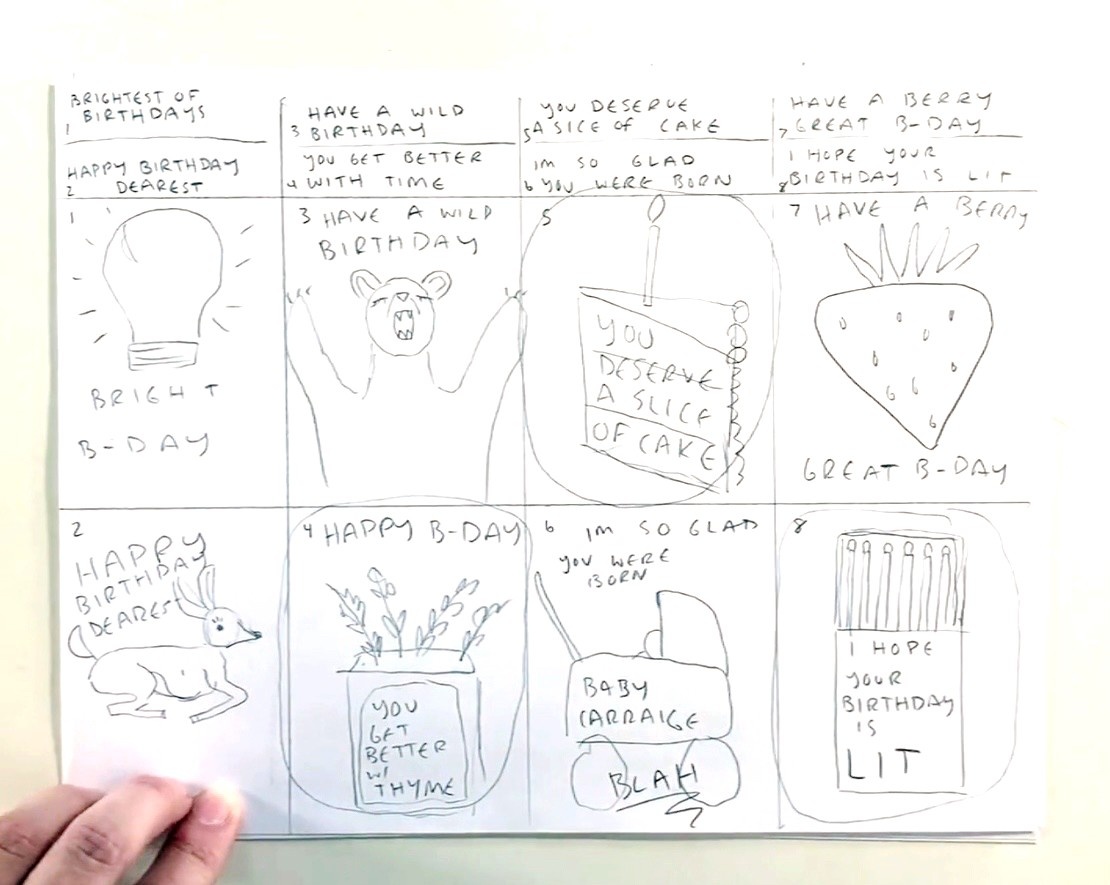 BRIGHTEST OF
BIRTHDAYS
1
HAPPY BIRTHDAY
2 DEAREST
HAVE A WILD
3 BIRTHDAY
YOU GET BETTER
4 WITH TIME
YOU DESERVE
5 A SICE OF CAKE
IM SO GLAD
6 YOU WERE BORN
HAVE A BERRY
7 GREAT B-DAY
I HOPE YOUR
8 BIRTHDAY IS LIT
1
BRIGHT
B-DAY
3 HAVE A WILD
BIRTHDAY
5
YOU
DESERVE
A SLICE
OF CAKE
7 HAVE A BERRY
GREAT B-DAY
2
HAPPY
BIRTHDAY
DEAREST
4 HAPPY B-DAY
YOU
GET
BETTER
W/
THYME
6 IM SO GLAD
YOU WERE
BORN
BABY
CARRAIGE
BLAH
8
I HOPE
YOUR
BIRTHDAY
IS
LIT